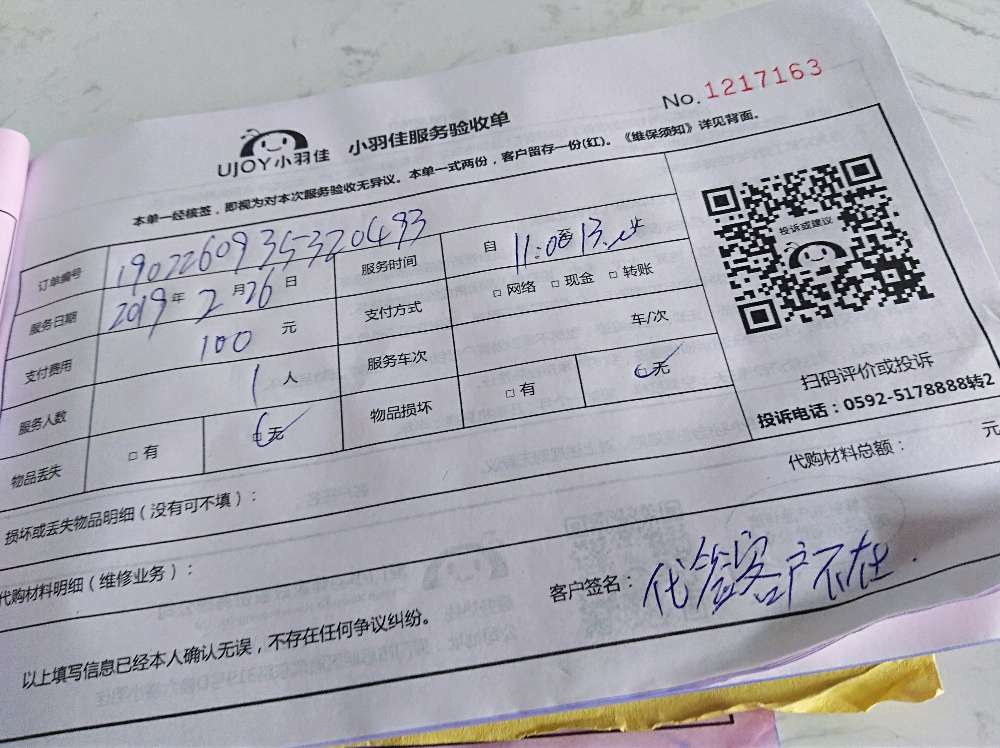 No. 1217163
UJOY小羽佳 小羽佳服务验收单
本单一经核签，即视为对本次服务验收无异议。本单一式两份，客户留存一份(红)。《维保须知》详见背面。
订单编号 1902260935320493 服务时间 自 11:00 至 13:
服务日期 2019年2月26日 支付方式 □网络 □现金 □转账
支付费用 100元 服务车次 车/次
服务人数 1人 物品损坏 □有 □无
物品丢失 □有 □无
投诉或建议
扫码评价或投诉
投诉电话：0592-5178888转2
损坏或丢失物品明细（没有可不填）：
代购材料总额： 元
代购材料明细（维修业务）：
客户签名： 代签客户不在.
以上填写信息已经本人确认无误，不存在任何争议纠纷。